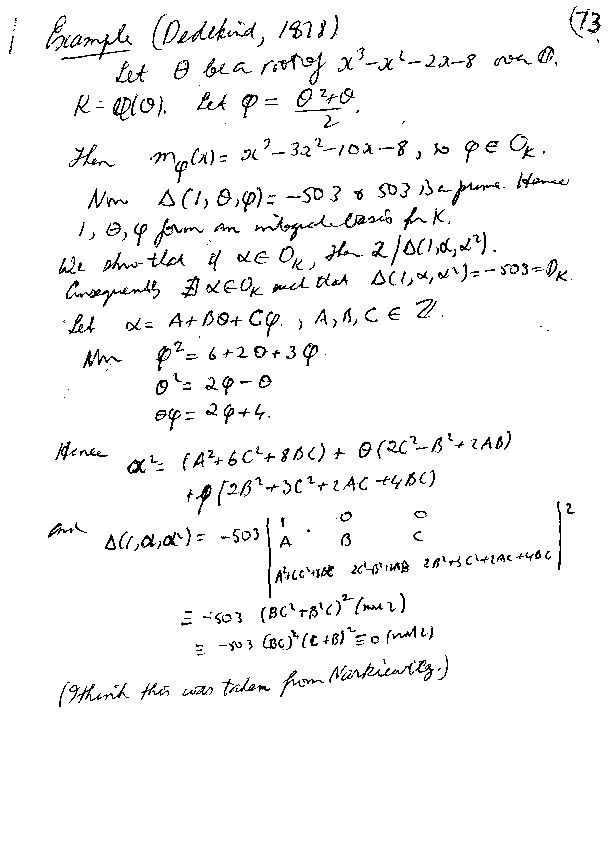 (73
Example (Dedekind, 1878)
Let θ be a root of x³-x²-2x-8 over Q.
K = Q(θ). Let φ = θ²+θ / 2.
Then m_φ(x) = x³-3x²-10x-8, so φ ∈ O_K.
Now Δ(1, θ, φ) = -503 & 503 is a prime. Hence
1, θ, φ form an integral basis for K.
We show that if α ∈ O_K, then 2 | Δ(1, α, α²).
Consequently ∄ α ∈ O_K such that Δ(1, α, α²) = -503 = D_K.
Let α = A + Bθ + Cφ, A, B, C ∈ Z.
Now φ² = 6 + 2θ + 3φ.
θ² = 2φ - θ
θφ = 2φ + 4.
Hence α² = (A² + 6C² + 8BC) + θ(2C² - B² + 2AB)
+ φ(2B² + 3C² + 2AC + 4BC)
and Δ(1, α, α²) = -503 | 1 0 0 |²
A B C
A²+6C²+8BC 2C²-B²+2AB 2B²+3C²+2AC+4BC
≡ -503 (BC² + B²C)² (mod 2)
≡ -503 (BC)² (C+B)² ≡ 0 (mod 2)
(I think this was taken from Narkiewitz.)